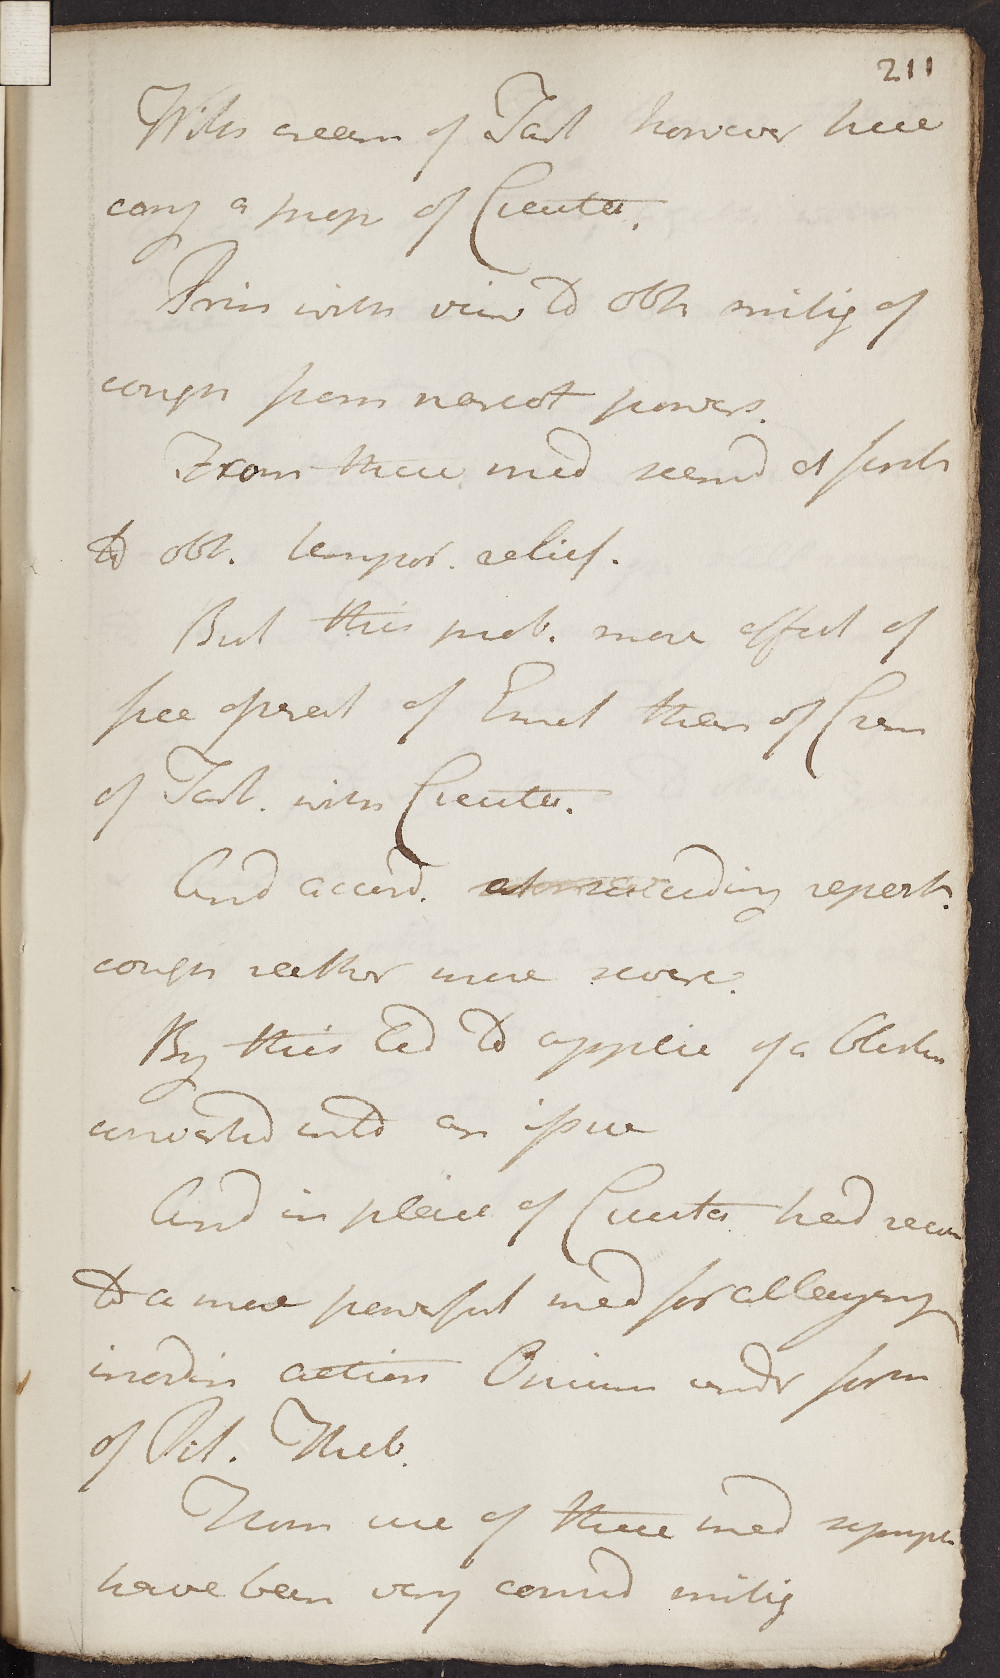 211
With cream of Tart however here
conj a prep of Cicuta.
Prin with view to obt mitig of
cough from narcot powers.
From these med seemd at first
to obt. tempor. relief.
But this prob. more effect of
free operat of Emet than of Crem
of Tart. with Cicuta.
And accord. at succeeding report.
cough rather more severe.
By this led to applic of a blister
converted into an issue
And in place of Cicuta had recou
to a more powerful med for allaying
inordin action Opium under form
of Pil. Theb.
From use of these med sympt
have been very consid mitig